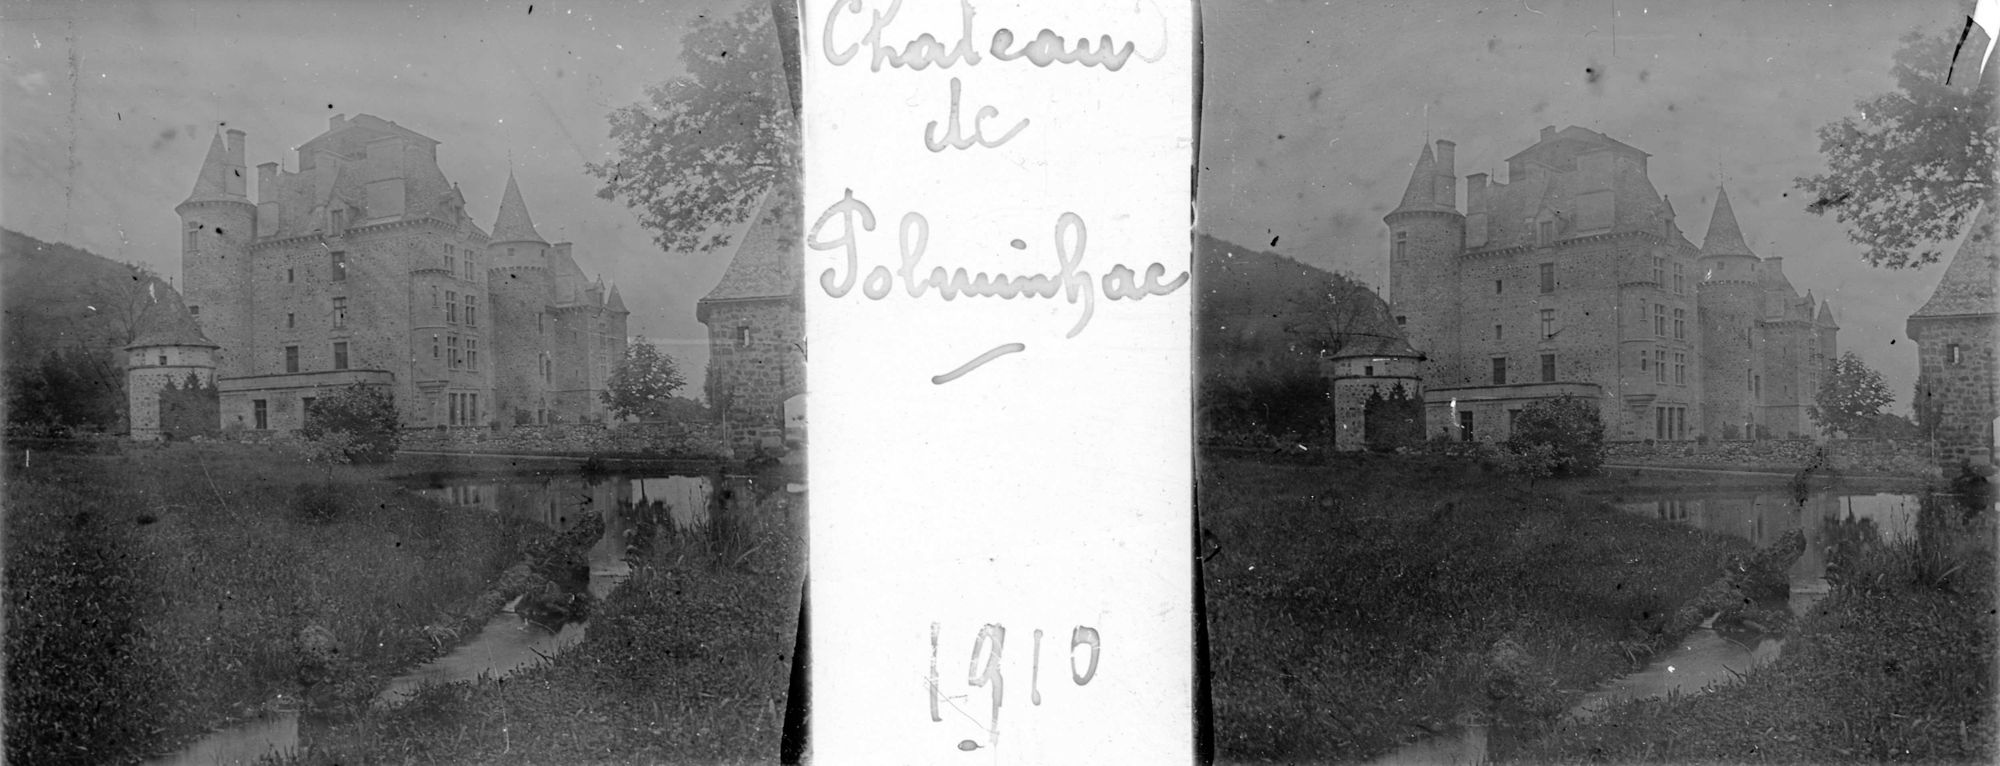 Chateau
de
Polminhac
1910